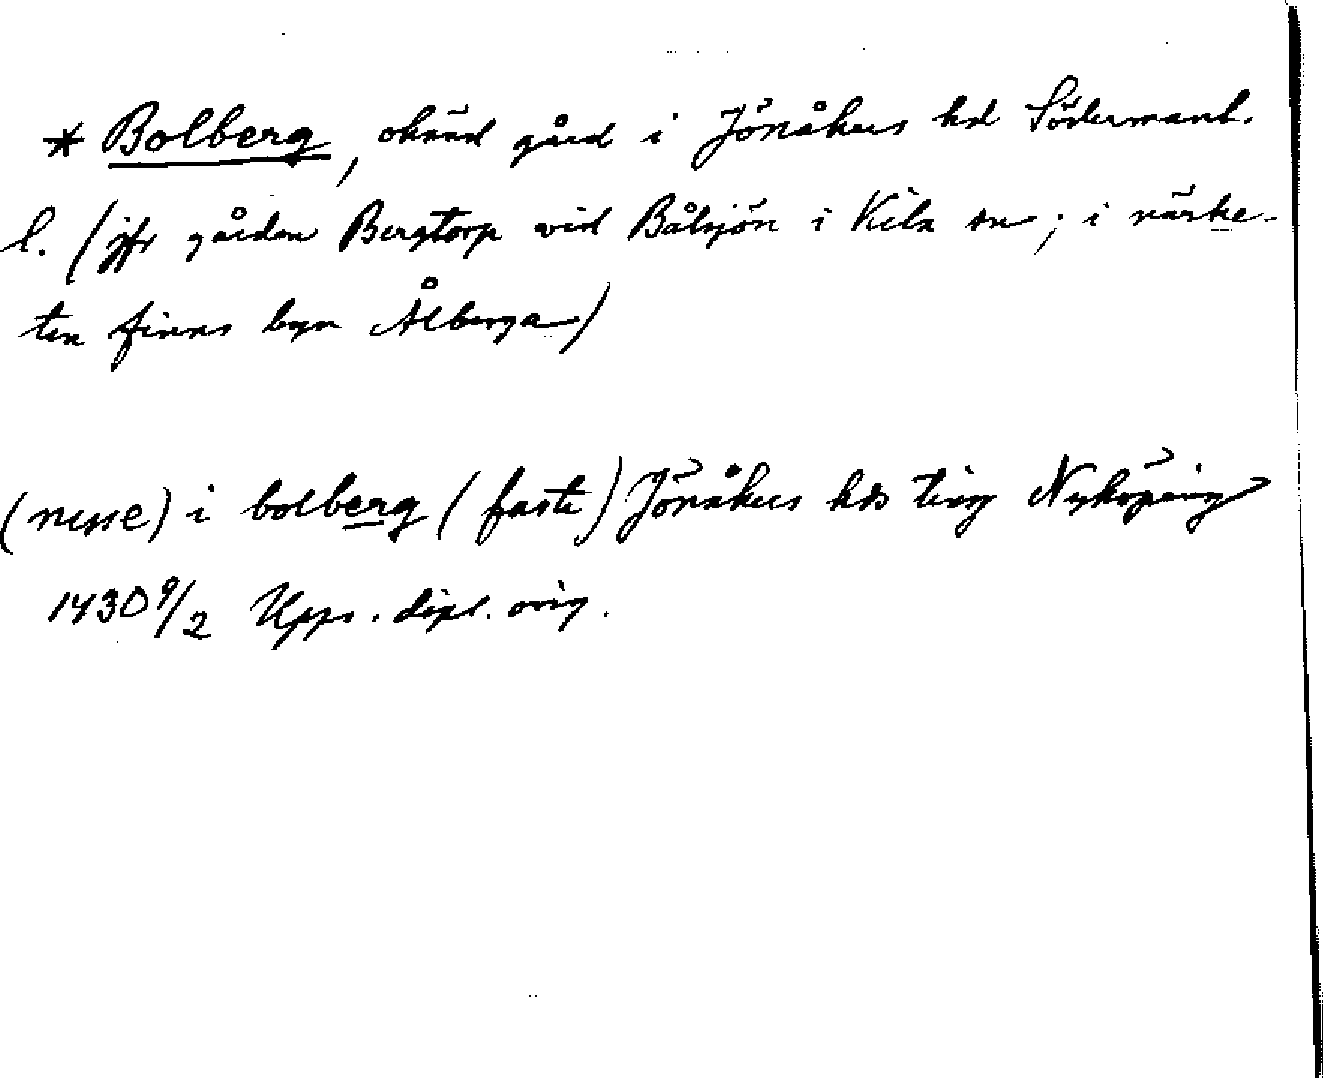 * Bolberg, okänd gård i Jönåkers hd Södermanl.
l. (jfr gården Bergtorp vid Bålsjön i Kila sn; i närhe-
ten finns byn Ålberga)
(nisse) i bolberg (faste) Jönåkers hds ting Nyköping
1430 9/2 Upps. dipl. orig.